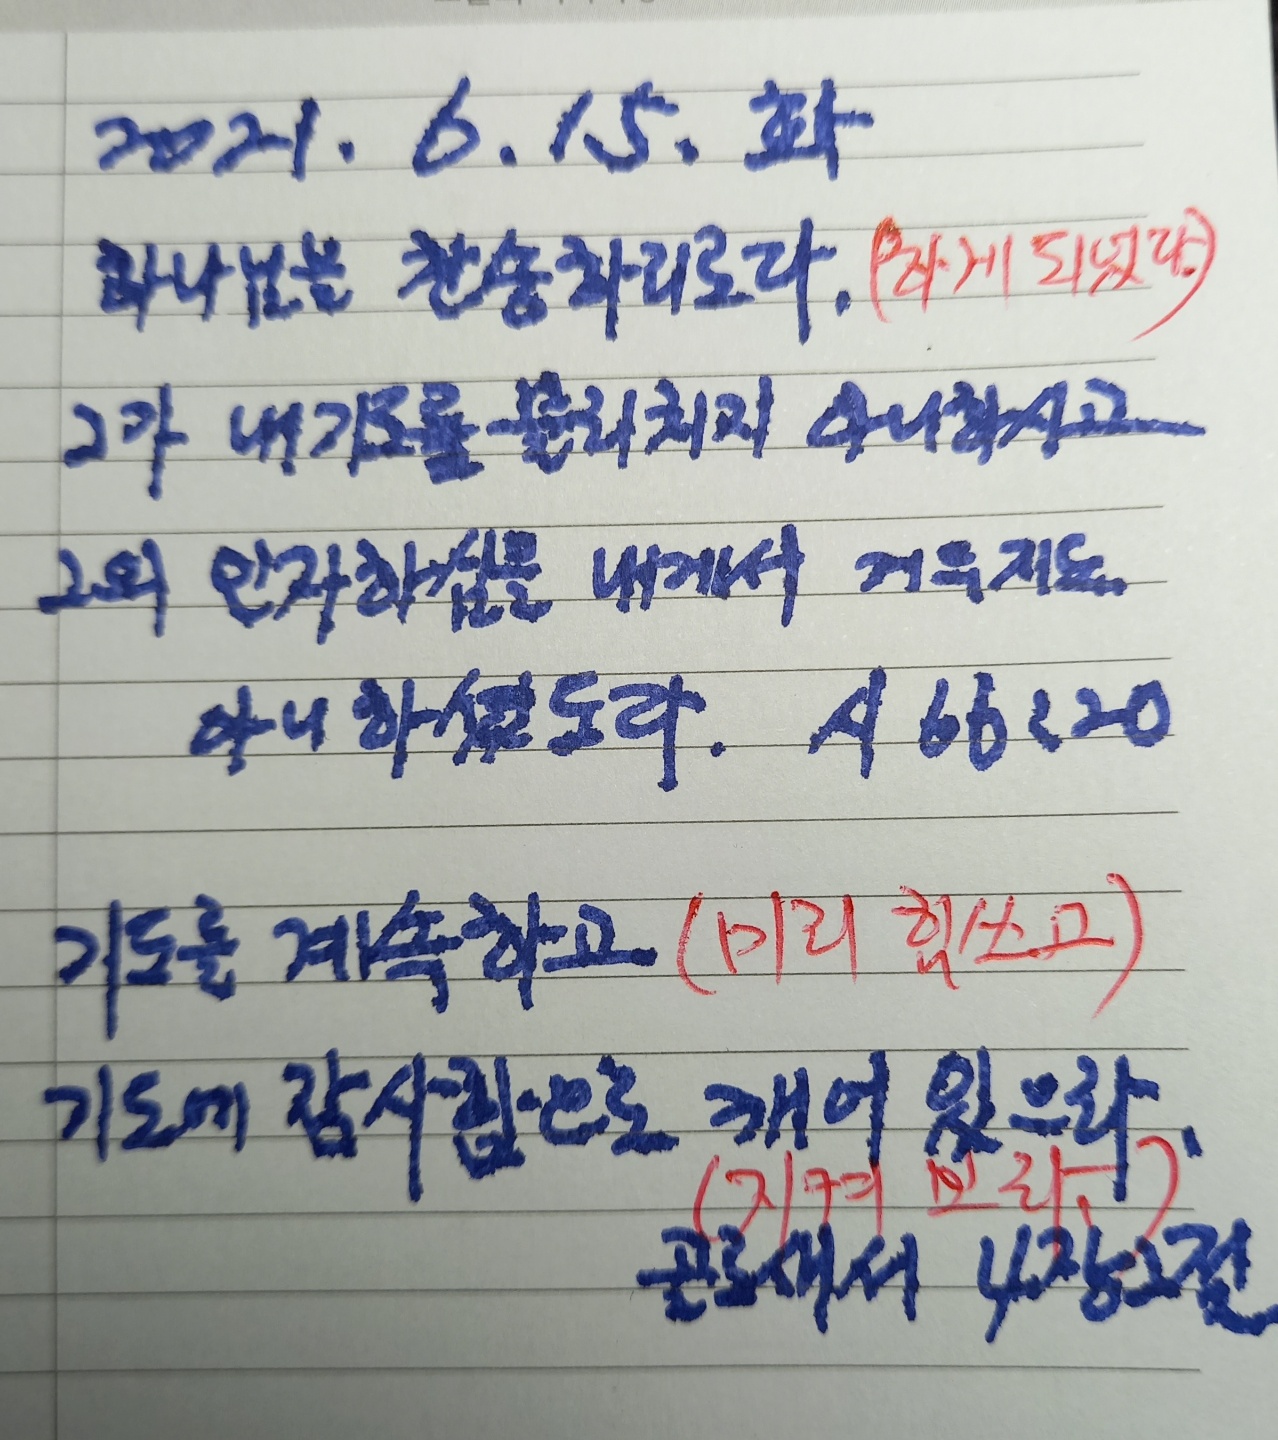 2021. 6. 15. 화
하나님을 찬송하리로다. (하게 되었다.)
그가 내 기도를 물리치지 아니하시고
그의 인자하심을 내게서 거두지도
아니하셨도다. 시 66:20
기도를 계속하고 (미리 힘쓰고)
기도에 감사함으로 깨어 있으라.
(지켜 보라.)
골로새서 4장2절